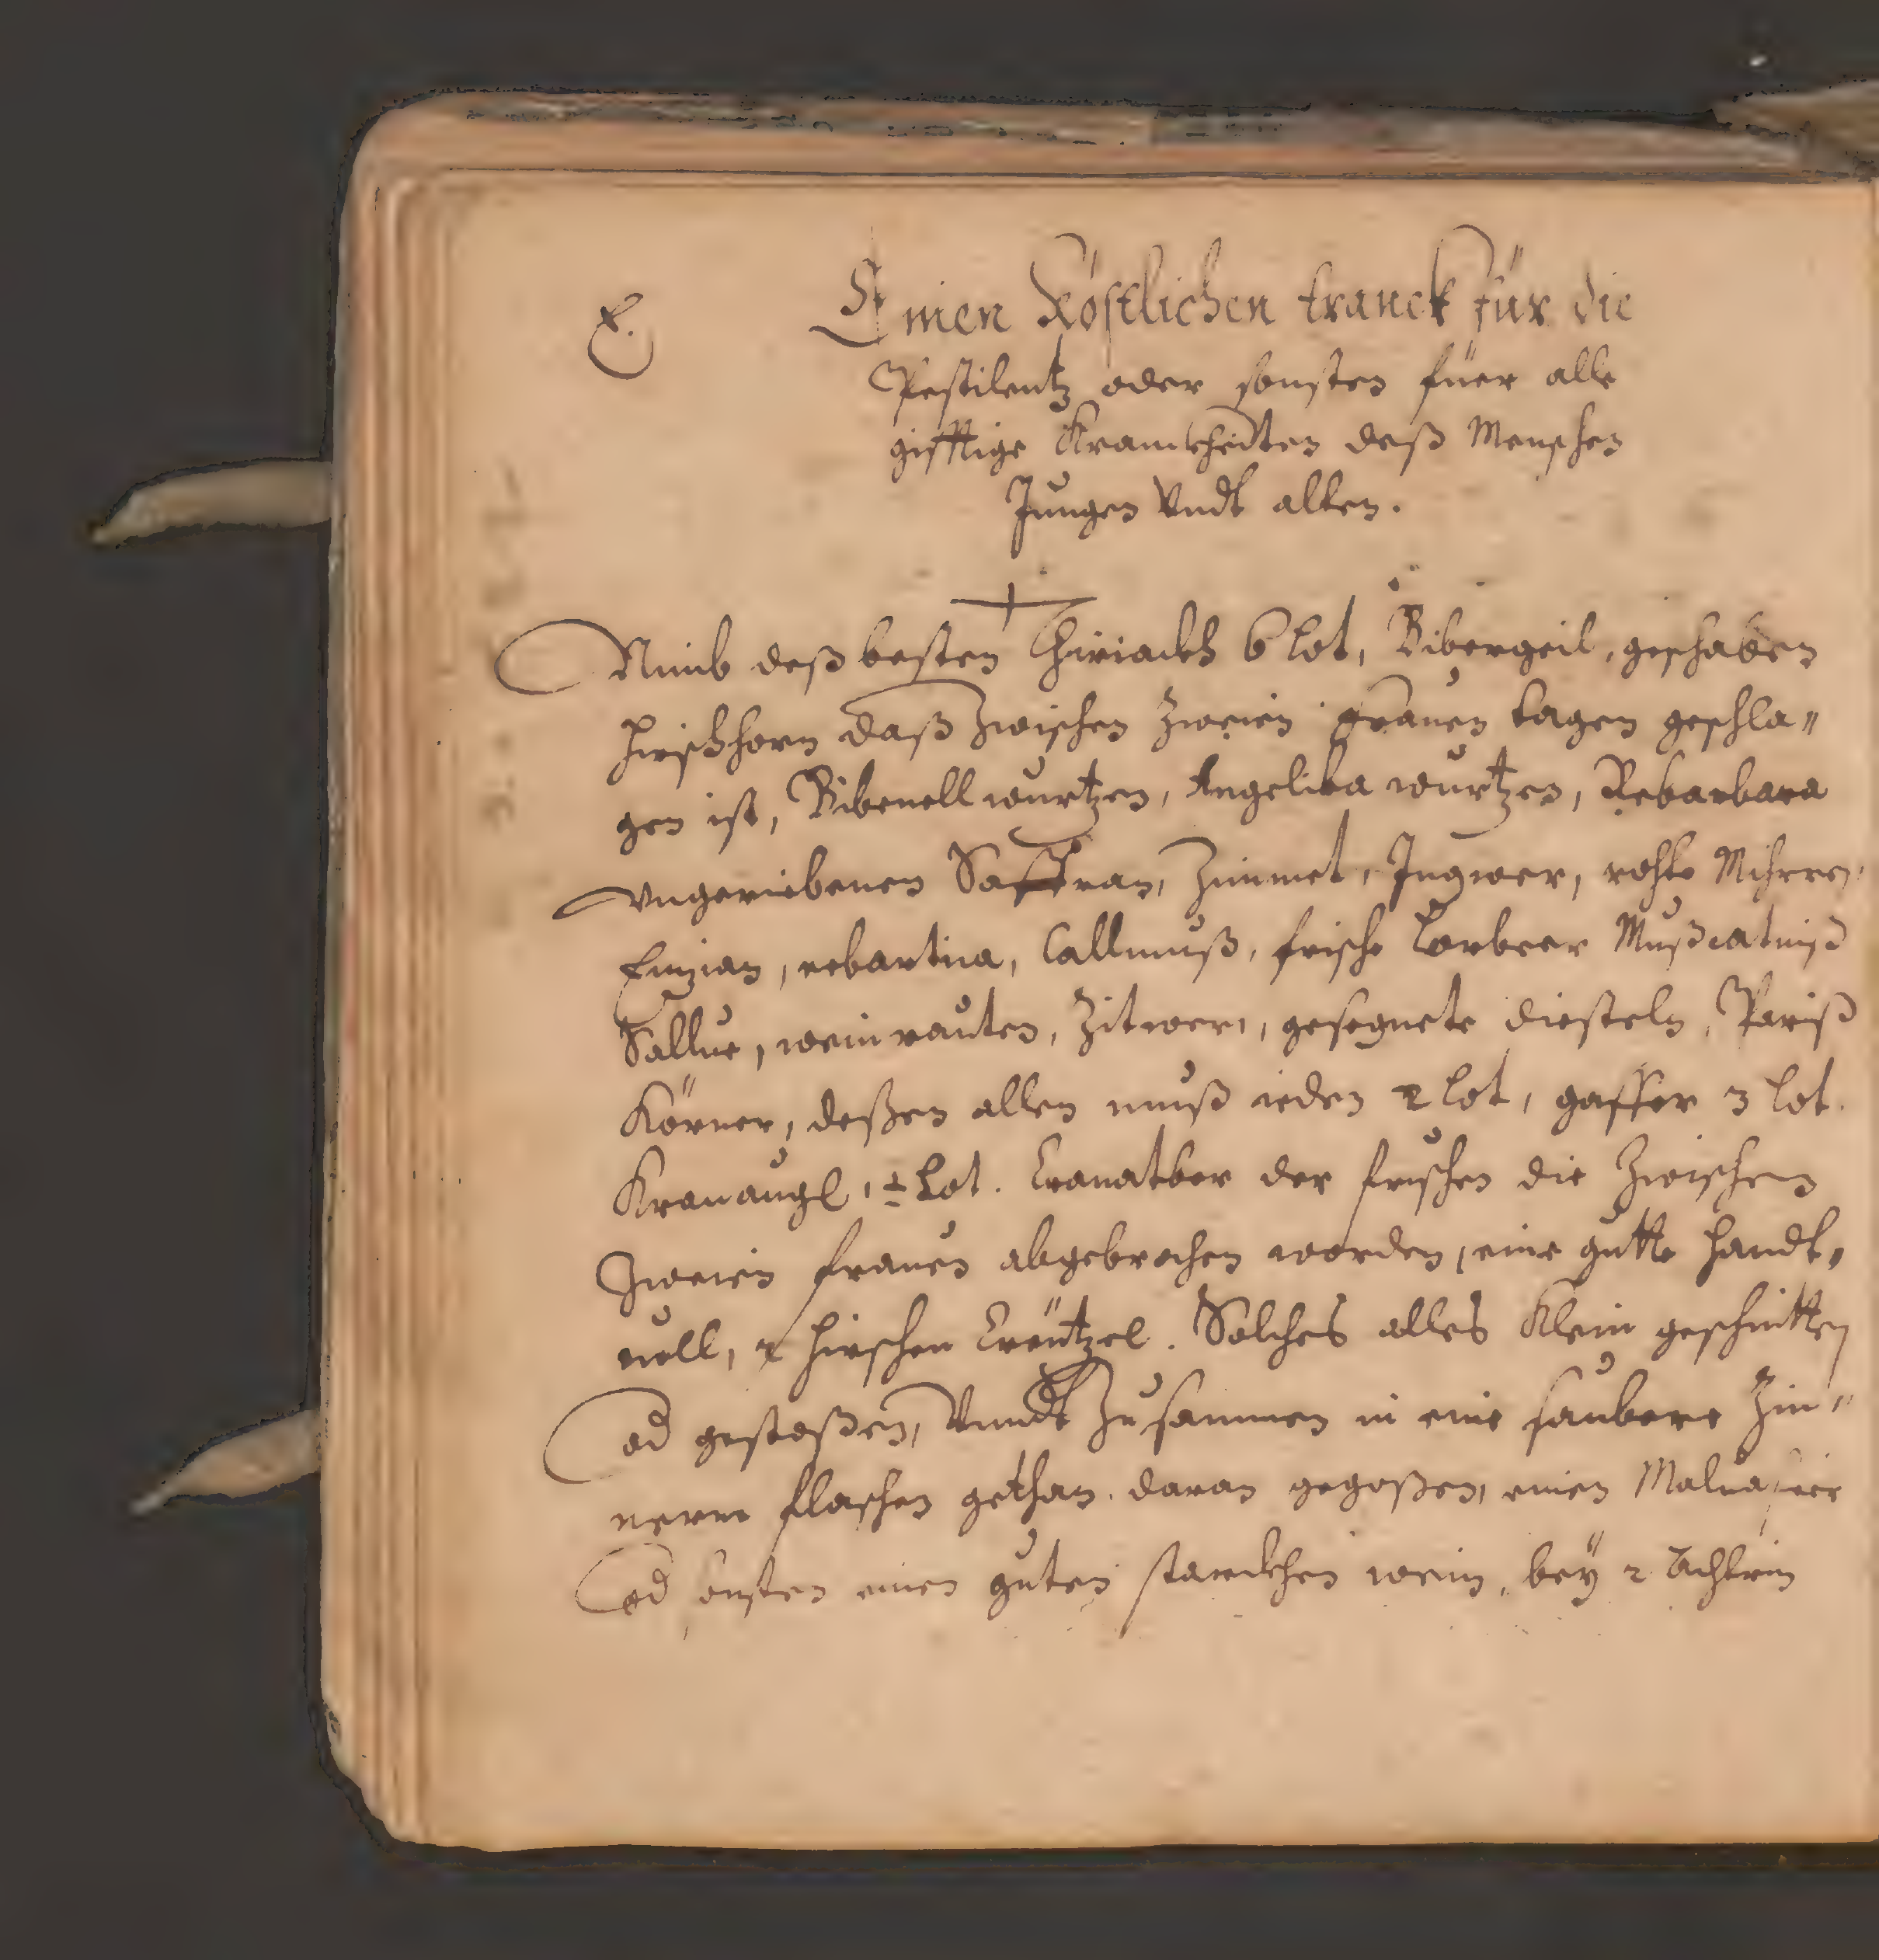 E.
Einen Köstlichen tranck für die
Pestilentz oder sonsten füer alle
gifftige Kranckheiten deß Menschen
Jungen Vndt alten.
Nimb deß besten Thiriackh 6 lot, Bibergeil, geschaben
Hirschhorn daß Zwischen Zweien frauen tagen geschla"
gen ist, Bibenell wurtzen, Angelika wurtzen, Rebarbara
Vngeriebenen Saffran, Zimmet, Ingwer, rohte Mihrren,
Enzian, rebartica, Callmuß, frische Lorbeer Mußcatnuß
Sallue, weinrauten, Zitwer, gesegnete diesteln, Pariß
Körner, deßen allen muß ieden 2 lot, gaffer 3 lot.
Kranaugl, ½ Lot. Cranatber der frischen die Zwischen
Zweien frauen abgebrochen worden, eine gutte handt,
voll, 2 hirschen Creutzel. Solches alles Klein geschnitten
od gestoßen, Vnndt Zusammen in eine saubere Zin"
nerne flaschen gethan. daran gegoßen, einen Maluasier
od sonsten einen guten starckhen wein, bey 2 Achterin